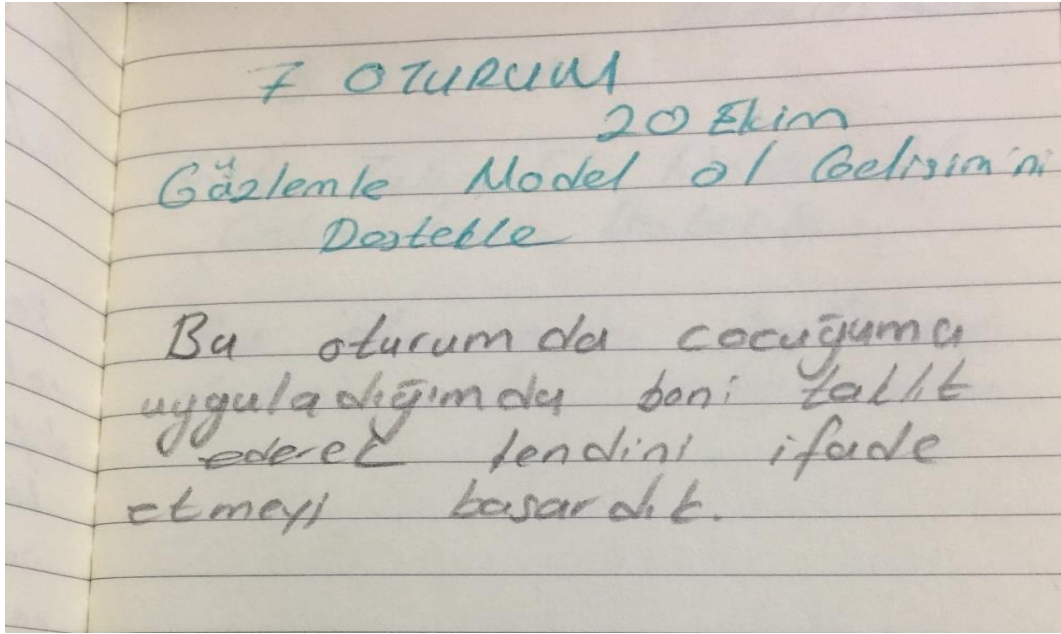 7 OTURUM
20 Ekim
Gözlemle Model ol Gelişim'ni
Destekle
Bu oturumda cocuğuma
uyguladığımda beni taklit
ederek kendini ifade
etmeyi basardık.